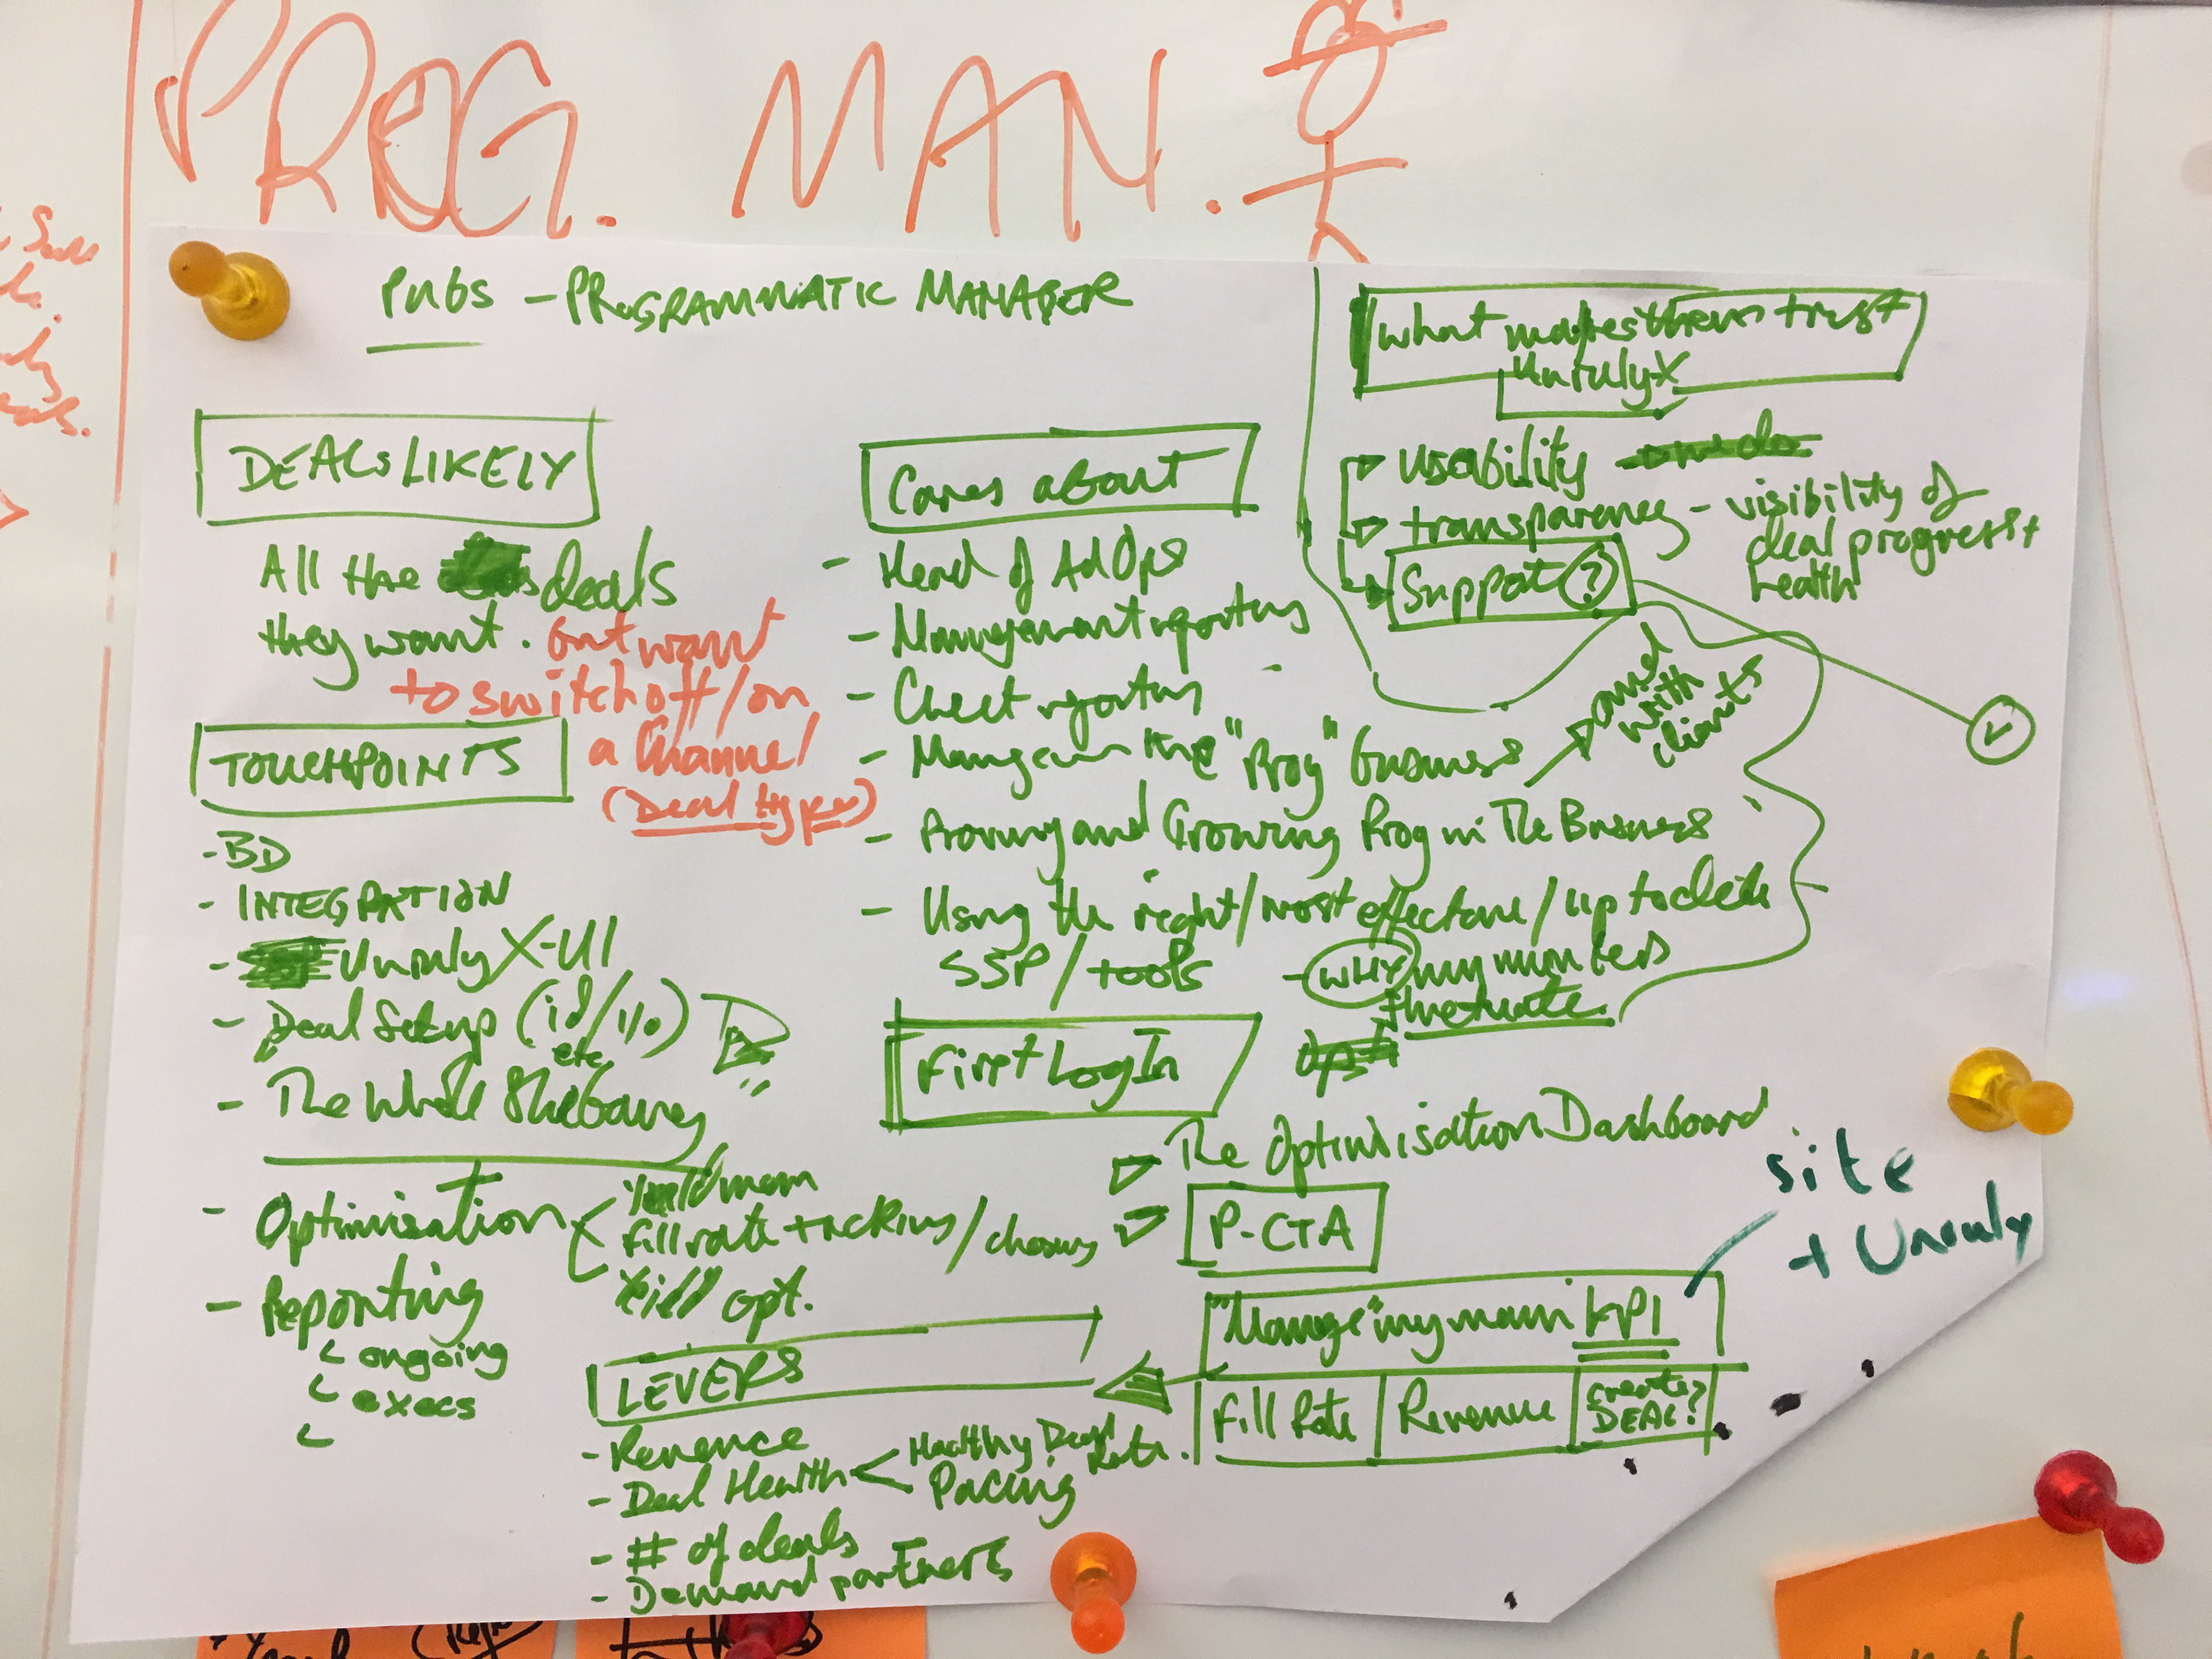 PROG. MAN.
PUBS - PROGRAMMATIC MANAGER
DEALS LIKELY
All the deals
they want. but want
to switch off/on
a channel
(Deal types)
TOUCHPOINTS
- BD
- INTEGRATION
- Unruly X-UI
- Deal Setup (id/I/O)
etc
- The Whole Shebang
- Optimisation < Yield mam
fill rate tracking/
Yield opt.
- Reporting
ongoing
execs
Cares about
- Head of AdOps
- Management reporting
- Client reporting
- Manage the "Prog" business → and
with
clients
- Proving and Growing Prog in The Business
- Using the right/most effective/up to date
SSP/tools
- WHY my numbers
fluctuate.
What makes them trust
UnrulyX
usability
transparency - visibility of
deal progress +
health
Support ?
First Log In
The Optimisation Dashboard
P-CTA
site
+ Unruly
"Manage" my main KPI
Fill Rate | Revenue | create
DEAL?
LEVERS
- Revenue
- Deal Health < Healthy Deal
Rate.
Pacing
- # of deals
- Demand partners